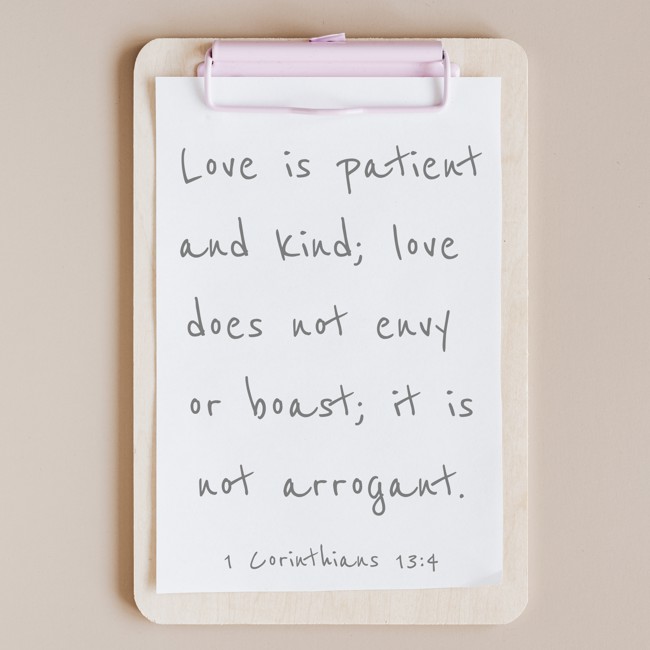 Love is patient
and kind; love
does not envy
or boast; it is
not arrogant.
1 Corinthians 13:4